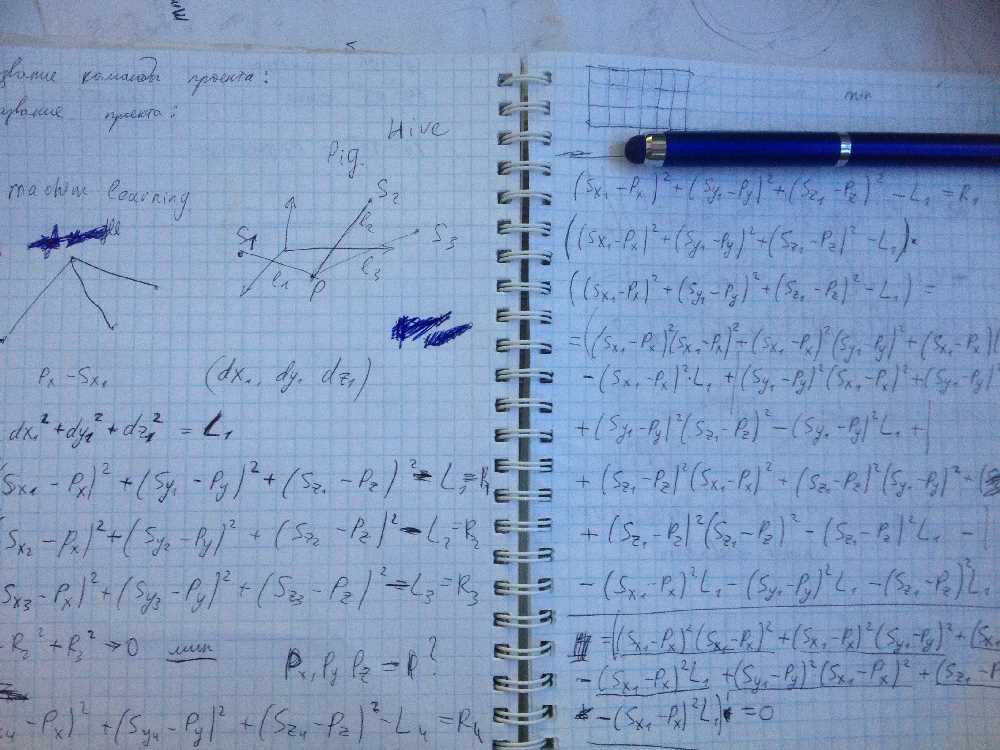 звание команды проекта:
звание проекта:
Hive
Pig.
machin learning
S₁ S₂ S₃
l₁ l₂ l₃ P
Pₓ - Sₓ₁ (dx₁, dy₁ dz₁)
dx₁² + dy₁² + dz₁² = L₁
(Sx₁ - Px)² + (Sy₁ - Py)² + (Sz₁ - Pz)² - L₁ = R₁
Sx₂ - Px)² + (Sy₂ - Py)² + (Sz₂ - Pz)² - L₂ = R₂
Sx₃ - Px)² + (Sy₃ - Py)² + (Sz₃ - Pz)² - L₃ = R₃
R₂² + R₃² → 0 мин
Px, Py Pz = ?
- Px)² + (Sy₄ - Py)² + (Sz₄ - Pz)² - L₄ = R₄
min
(Sx₁ - Px)² + (Sy₁ - Py)² + (Sz₁ - Pz)² - L₁ = R₁
((Sx₁ - Px)² + (Sy₁ - Py)² + (Sz₁ - Pz)² - L₁)·
((Sx₁ - Px)² + (Sy₁ - Py)² + (Sz₁ - Pz)² - L₁) =
= ((Sx₁ - Px)²(Sx₁ - Px)² + (Sx₁ - Px)²(Sy₁ - Py)² + (Sx₁ - Px)
- (Sx₁ - Px)²·L₁ + (Sy₁ - Py)²(Sx₁ - Px)² + (Sy₁ - Py)²
+ (Sy₁ - Py)²(Sz₁ - Pz)² - (Sy₁ - Py)²L₁ +
+ (Sz₁ - Pz)²(Sx₁ - Px)² + (Sz₁ - Pz)²(Sy₁ - Py)² + (
+ (Sz₁ - Pz)²(Sz₁ - Pz)² - (Sz₁ - Pz)²L₁ -
- (Sx₁ - Px)²L₁ - (Sy₁ - Py)²L₁ - (Sz₁ - Pz)²L₁
= ((Sx₁ - Px)²(Sx₁ - Px)² + (Sx₁ - Px)²(Sy₁ - Py)² + (Sx₁
- (Sx₁ - Px)²L₁ + (Sy₁ - Py)²(Sx₁ - Px)² + (Sz₁ - P
- (Sx₁ - Px)²L₁) = 0